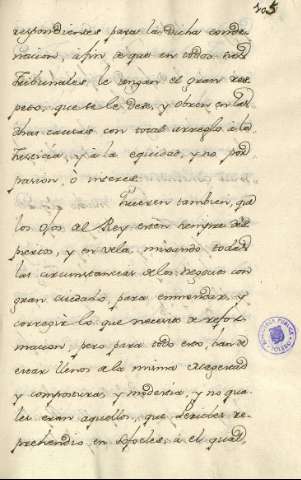 105
respondientes para la dicha conde-
nacion, à fin de que en todos sus
Tribunales le tengan el gran res-
peto, que se le deve, y obren en las
dhas causas con total arreglo à la
Justicia, y à la equidad, y no por
passion, ò interes.
Quieren tambien, que
los ojos del Rey estèn siempre des-
piertos, y en vela, mirando todas
las circunstancias de los negocios con
gran cuidado para enmendar, y
corregir lo que necesita de refor-
macion, pero para todo esto, han de
estar llenos de la misma
y compostura, y modestia, y no qua-
les eran aquellos, que Pericles re-
prehendio en Sofocles, à el qual,